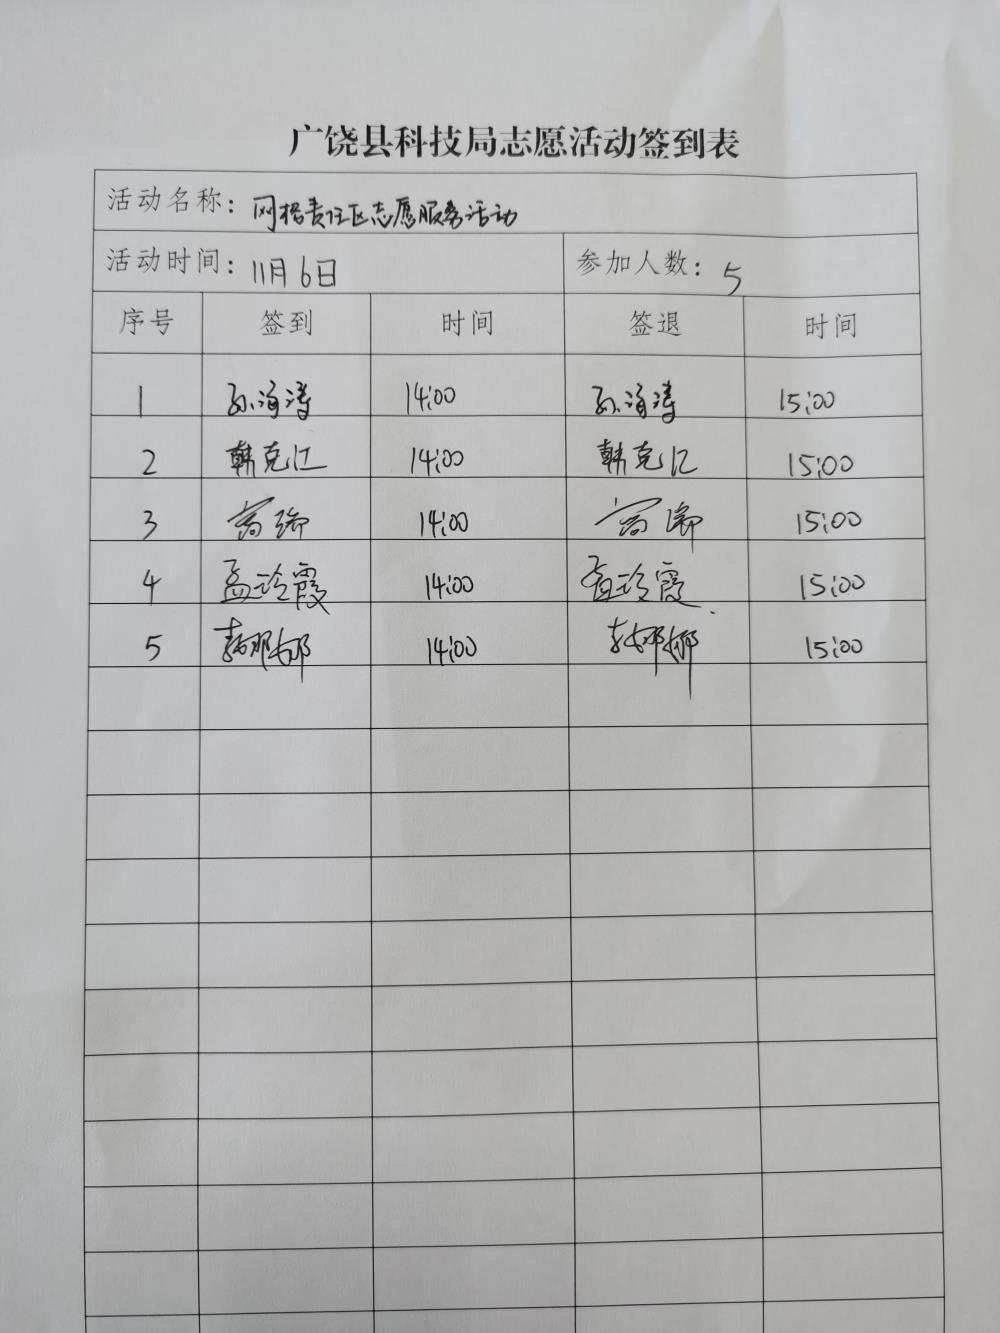 广饶县科技局志愿活动签到表
活动名称：网格责任区志愿服务活动
活动时间：11月6日 参加人数：5
序号 签到 时间 签退 时间
1 孙海涛 14:00 孙海涛 15:00
2 韩克江 14:00 韩克江 15:00
3 高瑞 14:00 高瑞 15:00
4 孟玲霞 14:00 孟玲霞 15:00
5 14:00 15:00